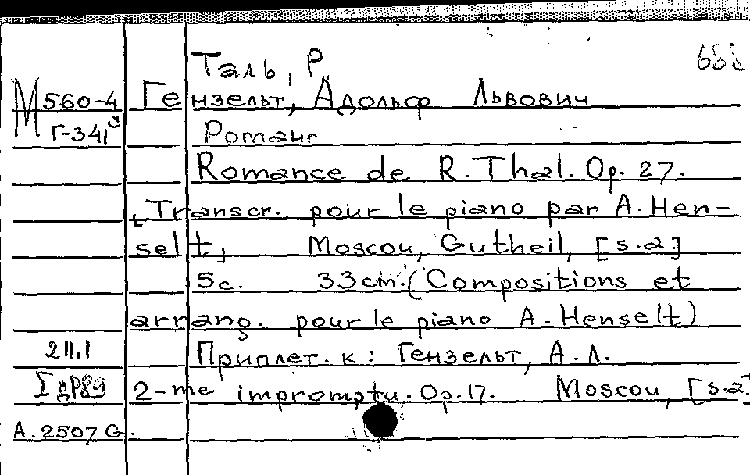 Таль, Р.
М 560-4 Гензельт, Адольф Львович
Г-341³ Романс
Romance de R. Thal. Op. 27.
Transcr. pour le piano par A. Hen-
selt, Moscou, Gutheil, [s.a]
5с. 33cm. (Compositions et
arrang. pour le piano A. Henselt)
211.1 Приплет. к: Гензельт, А. Л.
2-me impromptu. Op. 17. Moscou, [s.a]
A. 2507 G.